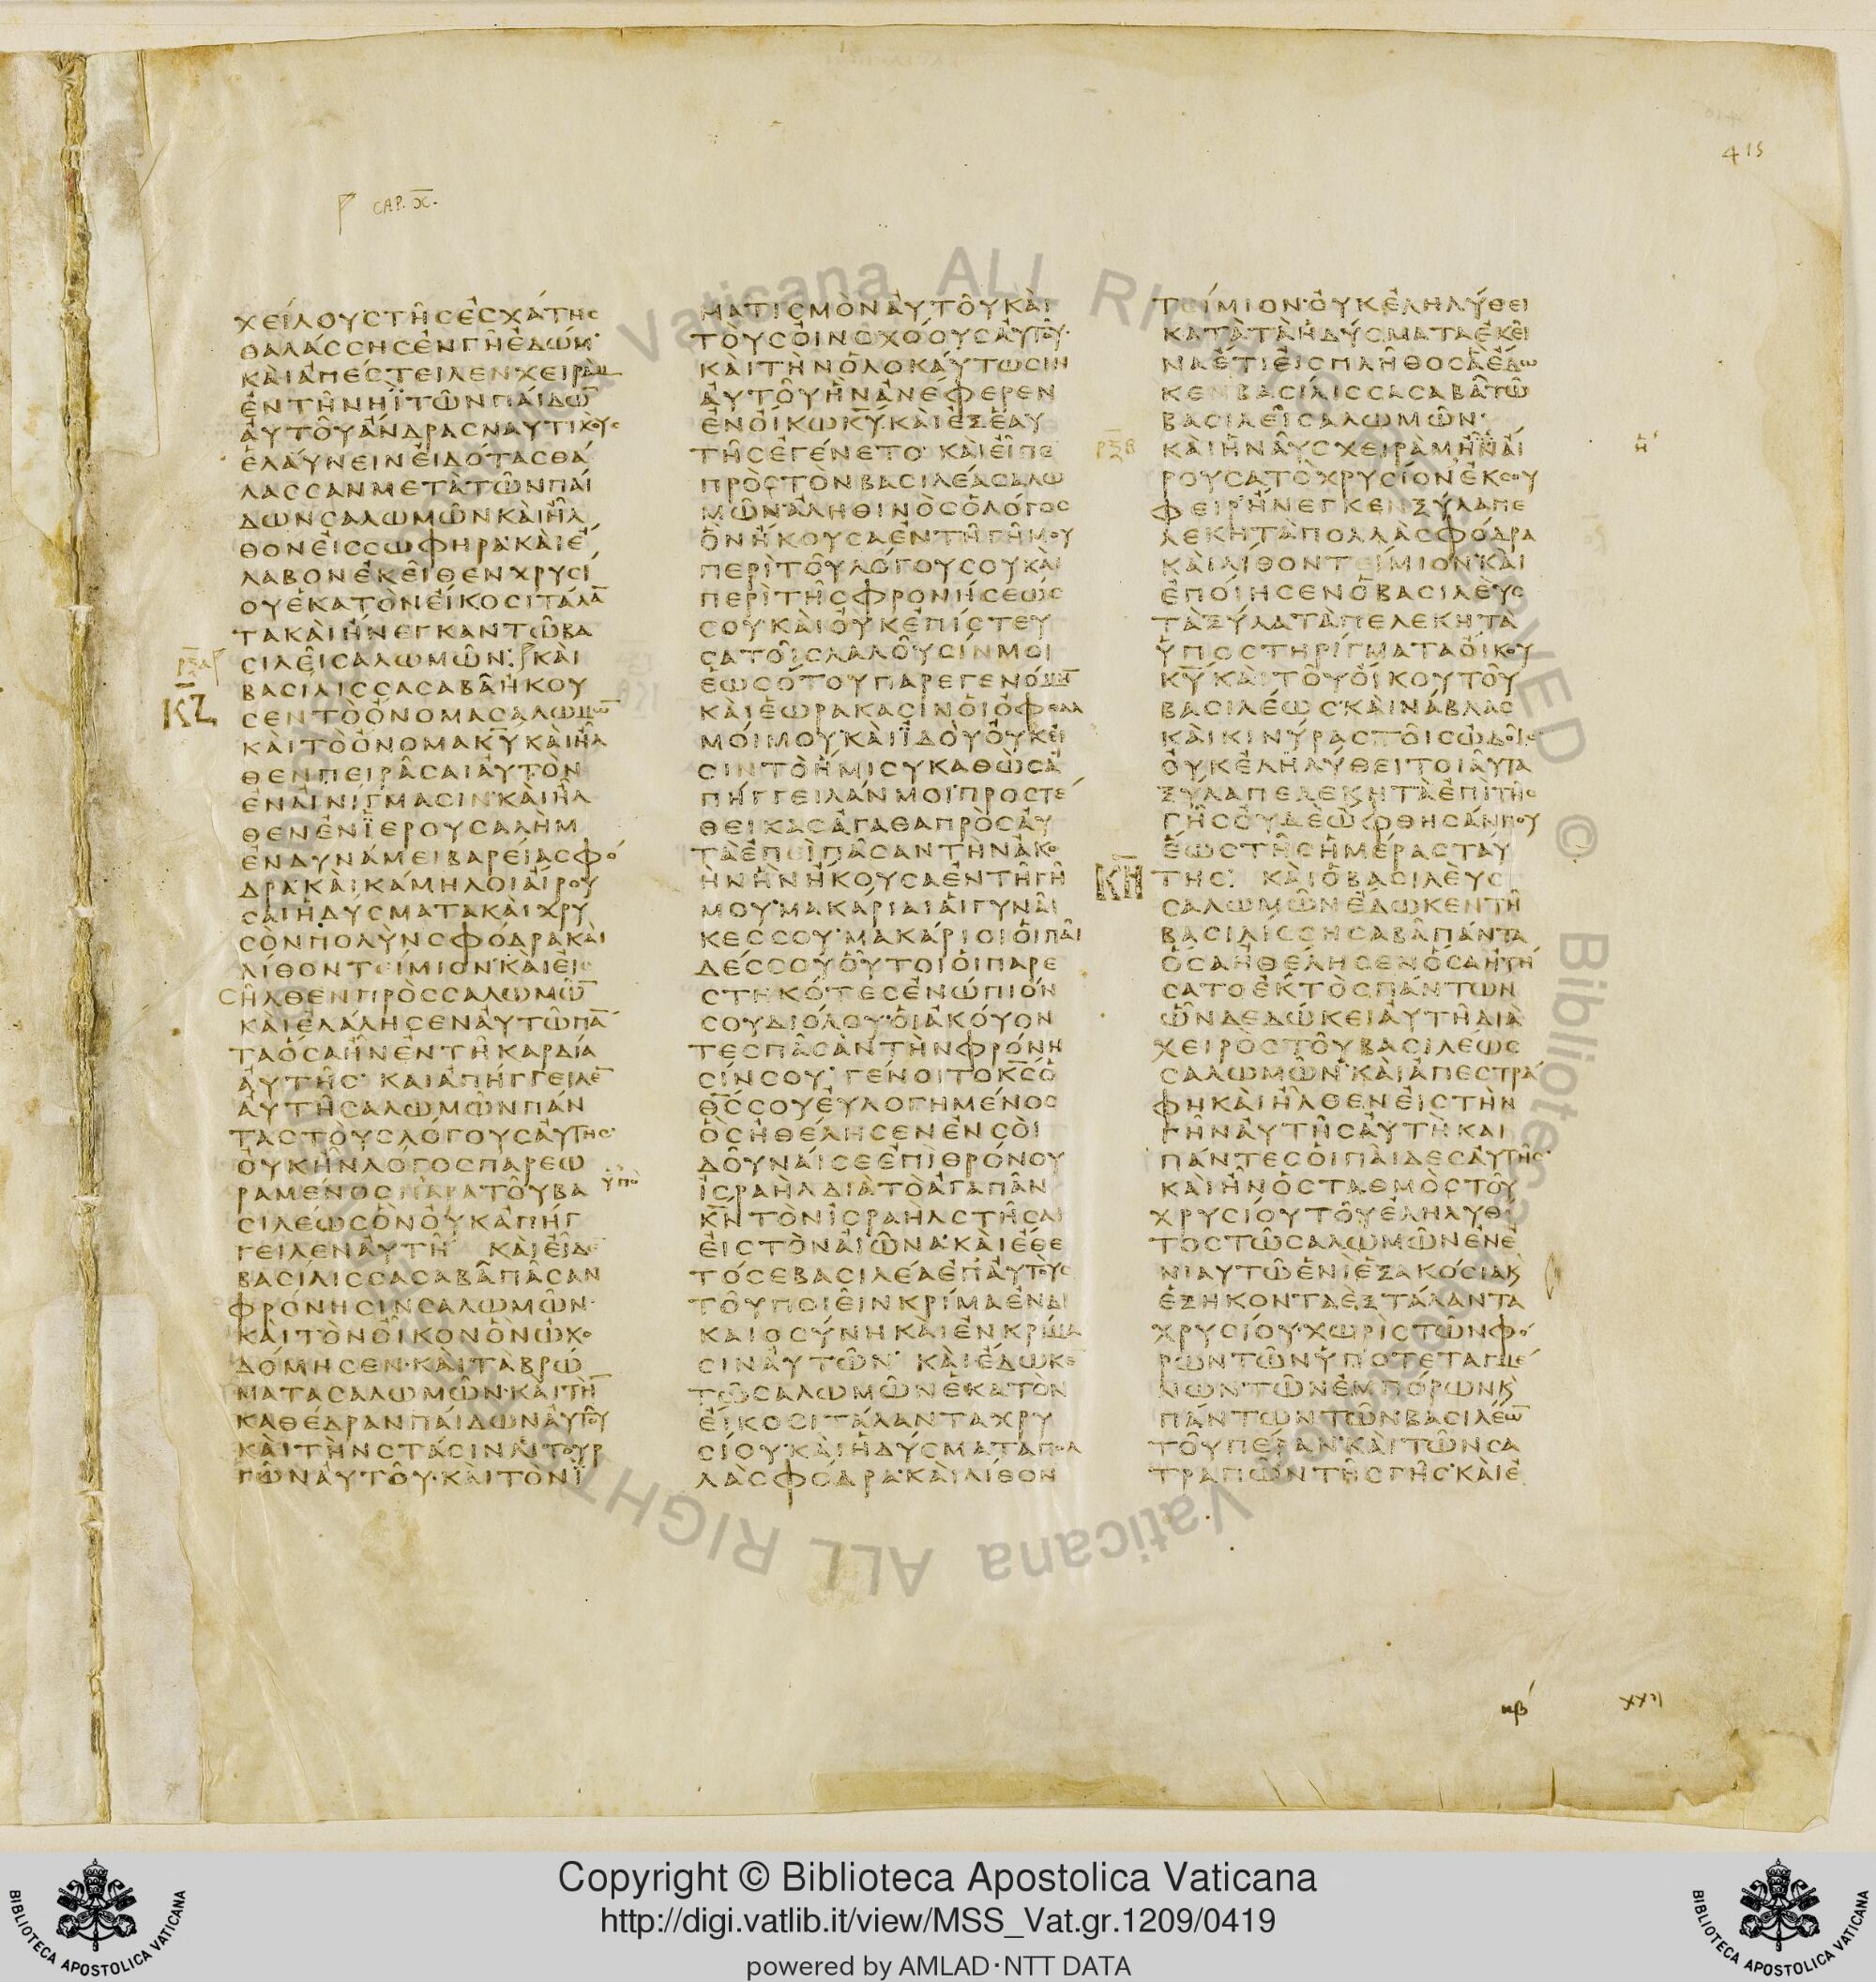 415
CAP. X.
ΧΕΙΛΟΥΣΤΗΣΕΣΧΑΤΗΣ
ΘΑΛΑΣΣΗΣΕΝΓΗΕΔΩΜ
ΚΑΙΑΠΕΣΤΕΙΛΕΝΧΕΙΡΑΜ
ΕΝΤΗΝΗΙΤΩΝΠΑΙΔΩ̅
ΑΥΤΟΥΑΝΔΡΑΣΝΑΥΤΙΚΟΥΣ
ΕΛΑΥΝΕΙΝΕΙΔΟΤΑΣΘΑ
ΛΑΣΣΑΝΜΕΤΑΤΩΝΠΑΙ
ΔΩΝΣΑΛΩΜΩΝΚΑΙΗΛ
ΘΟΝΕΙΣΣΩΦΗΡΑ·ΚΑΙΕ
ΛΑΒΟΝΕΚΕΙΘΕΝΧΡΥΣΙ
ΟΥΕΚΑΤΟΝΕΙΚΟΣΙΤΑΛΑ̅
ΤΑΚΑΙΗΝΕΓΚΑΝΤΩΒΑ
ΣΙΛΕΙΣΑΛΩΜΩΝ: ΚΑΙ
ΒΑΣΙΛΙΣΣΑΣΑΒΑΗΚΟΥ
ΚΖ ΣΕΝΤΟΟΝΟΜΑΣΑΛΩΜΩ̅
ΚΑΙΤΟΟΝΟΜΑΚ̅Υ̅ΚΑΙΗΛ
ΘΕΝΠΕΙΡΑΣΑΙΑΥΤΟΝ
ΕΝΑΙΝΙΓΜΑΣΙΝ·ΚΑΙΗΛ
ΘΕΝΕΝΙΕΡΟΥΣΑΛΗΜ
ΕΝΔΥΝΑΜΕΙΒΑΡΕΙΑΣΦΟ
ΔΡΑ·ΚΑΙΚΑΜΗΛΟΙΑΙΡΟΥ
ΣΑΙΗΔΥΣΜΑΤΑΚΑΙΧΡΥ
ΣΟΝΠΟΛΥΝΣΦΟΔΡΑΚΑΙ
ΛΙΘΟΝΤΕΙΜΙΟΝ·ΚΑΙΕΙΣ
ΗΛΘΕΝΠΡΟΣΣΑΛΩΜΩ̅
ΚΑΙΕΛΑΛΗΣΕΝΑΥΤΩΠΑ̅
ΤΑΟΣΑΗΝΕΝΤΗΚΑΡΔΙΑ
ΑΥΤΗΣ· ΚΑΙΑΠΗΓΓΕΙΛΕ̅
ΑΥΤΗΣΑΛΩΜΩΝΠΑΝ
ΤΑΣΤΟΥΣΛΟΓΟΥΣΑΥΤΗΣ·
ΟΥΚΗΝΛΟΓΟΣΠΑΡΕΩ
ΡΑΜΕΝΟΣΠΑΡΑΤΟΥΒΑ ὑπὸ
ΣΙΛΕΩΣΟΝΟΥΚΑΠΗΓ
ΓΕΙΛΕΝΑΥΤΗ ΚΑΙΕΙΔΕ̅
ΒΑΣΙΛΙΣΣΑΣΑΒΑΠΑΣΑΝ
ΦΡΟΝΗΣΙΝΣΑΛΩΜΩΝ·
ΚΑΙΤΟΝΟΙΚΟΝΟΝΩΚΟ
ΔΟΜΗΣΕΝ·ΚΑΙΤΑΒΡΩ
ΜΑΤΑΣΑΛΩΜΩΝ·ΚΑΙΤΗ̅
ΚΑΘΕΔΡΑΝΠΑΙΔΩΝΑΥΤΟΥ
ΚΑΙΤΗΝΣΤΑΣΙΝΛΙΤΟΥΡ
ΓΩΝΑΥΤΟΥ·ΚΑΙΤΟΝΙ
ΜΑΤΙΣΜΟΝΑΥΤΟΥΚΑΙ
ΤΟΥΣΟΙΝΟΧΟΟΥΣΑΥΤΟΥ·
ΚΑΙΤΗΝΟΛΟΚΑΥΤΩΣΙΝ
ΑΥΤΟΥΗΝΑΝΕΦΕΡΕΝ
ΕΝΟΙΚΩΚ̅Υ̅·ΚΑΙΕΞΕΑΥ
ΤΗΣΕΓΕΝΕΤΟ· ΚΑΙΕΙΠΕ
ΠΡΟΣΤΟΝΒΑΣΙΛΕΑΣΑΛΩ
ΜΩΝ·ΑΛΗΘΙΝΟΣΟΛΟΓΟΣ
ΟΝΗΚΟΥΣΑΕΝΤΗΓΗΜΟΥ
ΠΕΡΙΤΟΥΛΟΓΟΥΣΟΥΚΑΙ
ΠΕΡΙΤΗΣΦΡΟΝΗΣΕΩΣ
ΣΟΥ·ΚΑΙΟΥΚΕΠΙΣΤΕΥ
ΣΑΤΟΙΣΛΑΛΟΥΣΙΝΜΟΙ
ΕΩΣΟΤΟΥΠΑΡΕΓΕΝΟΜΗ̅
ΚΑΙΕΩΡΑΚΑΣΙΝΟΙΟΦΘΑΛ
ΜΟΙΜΟΥ·ΚΑΙΙΔΟΥΟΥΚΕΙ
ΣΙΝΤΟΗΜΙΣΥΚΑΘΩΣΑ
ΠΗΓΓΕΙΛΑΝΜΟΙ·ΠΡΟΣΤΕ
ΘΕΙΚΑΣΑΓΑΘΑΠΡΟΣΑΥ
ΤΑΕΠΙΠΑΣΑΝΤΗΝΑΚΟ
ΗΝΗΝΗΚΟΥΣΑΕΝΤΗΓΗ
ΜΟΥ·ΜΑΚΑΡΙΑΙΑΙΓΥΝΑΙ
ΚΕΣΣΟΥ·ΜΑΚΑΡΙΟΙΟΙΠΑΙ
ΔΕΣΣΟΥΟΥΤΟΙΟΙΠΑΡΕ
ΣΤΗΚΟΤΕΣΕΝΩΠΙΟΝ
ΣΟΥΔΙΟΛΟΥ·ΟΙΑΚΟΥΟΝ
ΤΕΣΠΑΣΑΝΤΗΝΦΡΟΝΗ
ΣΙΝΣΟΥ· ΓΕΝΟΙΤΟΚ̅Σ̅Ο
Θ̅Σ̅ΣΟΥΕΥΛΟΓΗΜΕΝΟΣ
ΟΣΗΘΕΛΗΣΕΝΕΝΣΟΙ
ΔΟΥΝΑΙΣΕΕΠΙΘΡΟΝΟΥ
ΙΣΡΑΗΛΔΙΑΤΟΑΓΑΠΑΝ
Κ̅Ν̅ΤΟΝΙΣΡΑΗΛΣΤΗΣΑΙ
ΕΙΣΤΟΝΑΙΩΝΑ·ΚΑΙΕΘΕ
ΤΟΣΕΒΑΣΙΛΕΑΕΠΑΥΤΟΥΣ
ΤΟΥΠΟΙΕΙΝΚΡΙΜΑΕΝΔΙ
ΚΑΙΟΣΥΝΗΚΑΙΕΝΚΡΙΜΑ
ΣΙΝΑΥΤΩΝ· ΚΑΙΕΔΩΚΕ̅
ΤΩΣΑΛΩΜΩΝΕΚΑΤΟΝ
ΕΙΚΟΣΙΤΑΛΑΝΤΑΧΡΥ
ΣΙΟΥ·ΚΑΙΗΔΥΣΜΑΤΑΠΟΛ
ΛΑΣΦΟΔΡΑ·ΚΑΙΛΙΘΟΝ
ΤΕΙΜΙΟΝ·ΟΥΚΕΛΗΛΥΘΕΙ
ΚΑΤΑΤΑΗΔΥΣΜΑΤΑΕΚΕΙ
ΝΑΕΤΙΕΙΣΠΛΗΘΟΣΑΕΔΩ
ΚΕΝΒΑΣΙΛΙΣΣΑΣΑΒΑΤΩ
ΒΑΣΙΛΕΙΣΑΛΩΜΩΝ·
ΡΞΒ ΚΑΙΗΝΑΥΣΧΕΙΡΑΜΗΑΙ
ΡΟΥΣΑΤΟΧΡΥΣΙΟΝΕΚΣΟΥ
ΦΕΙΡΗΝΕΓΚΕΝΞΥΛΑΠΕ
ΛΕΚΗΤΑΠΟΛΛΑΣΦΟΔΡΑ
ΚΑΙΛΙΘΟΝΤΕΙΜΙΟΝ·ΚΑΙ
ΕΠΟΙΗΣΕΝΟΒΑΣΙΛΕΥΣ
ΤΑΞΥΛΑΤΑΠΕΛΕΚΗΤΑ
ΥΠΟΣΤΗΡΙΓΜΑΤΑΟΙΚΟΥ
Κ̅Υ̅ΚΑΙΤΟΥΟΙΚΟΥΤΟΥ
ΒΑΣΙΛΕΩΣ·ΚΑΙΝΑΒΛΑΣ
ΚΑΙΚΙΝΥΡΑΣΤΟΙΣΩΔΟΙΣ
ΟΥΚΕΛΗΛΥΘΕΙΤΟΙΑΥΤΑ
ΞΥΛΑΠΕΛΕΚΗΤΑΕΠΙΤΗΣ
ΓΗΣΟΥΔΕΩΦΘΗΣΑΝΠΟΥ
ΕΩΣΤΗΣΗΜΕΡΑΣΤΑΥ
ΚΗ ΤΗΣ: ΚΑΙΟΒΑΣΙΛΕΥΣ
ΣΑΛΩΜΩΝΕΔΩΚΕΝΤΗ
ΒΑΣΙΛΙΣΣΗΣΑΒΑΠΑΝΤΑ
ΟΣΑΗΘΕΛΗΣΕΝΟΣΑΗΤΗ
ΣΑΤΟΕΚΤΟΣΠΑΝΤΩΝ
ΩΝΔΕΔΩΚΕΙΑΥΤΗΔΙΑ
ΧΕΙΡΟΣΤΟΥΒΑΣΙΛΕΩΣ
ΣΑΛΩΜΩΝ·ΚΑΙΑΠΕΣΤΡΑ
ΦΗΚΑΙΗΛΘΕΝΕΙΣΤΗΝ
ΓΗΝΑΥΤΗΣΑΥΤΗΚΑΙ
ΠΑΝΤΕΣΟΙΠΑΙΔΕΣΑΥΤΗΣ·
ΚΑΙΗΝΟΣΤΑΘΜΟΣΤΟΥ
ΧΡΥΣΙΟΥΤΟΥΕΛΗΛΥΘΟ
ΤΟΣΤΩΣΑΛΩΜΩΝΕΝΕ
ΝΙΑΥΤΩΕΝΙΕΞΑΚΟΣΙΑΚ
ΕΞΗΚΟΝΤΑΕΞΤΑΛΑΝΤΑ
ΧΡΥΣΙΟΥ·ΧΩΡΙΣΤΩΝΦΟ
ΡΩΝΤΩΝΥΠΟΤΕΤΑΓΜΕ
ΝΩΝ·ΤΩΝΕΜΠΟΡΩΝΚ
ΠΑΝΤΩΝΤΩΝΒΑΣΙΛΕΩ̅
ΤΟΥΠΕΡΑΝ·ΚΑΙΤΩΝΣΑ
ΤΡΑΠΩΝΤΗΣΓΗΣ·ΚΑΙΕ
κβ XXII
Copyright © Biblioteca Apostolica Vaticana
http://digi.vatlib.it/view/MSS_Vat.gr.1209/0419
powered by AMLAD·NTT DATA
BIBLIOTECA APOSTOLICA VATICANA
BIBLIOTECA APOSTOLICA VATICANA